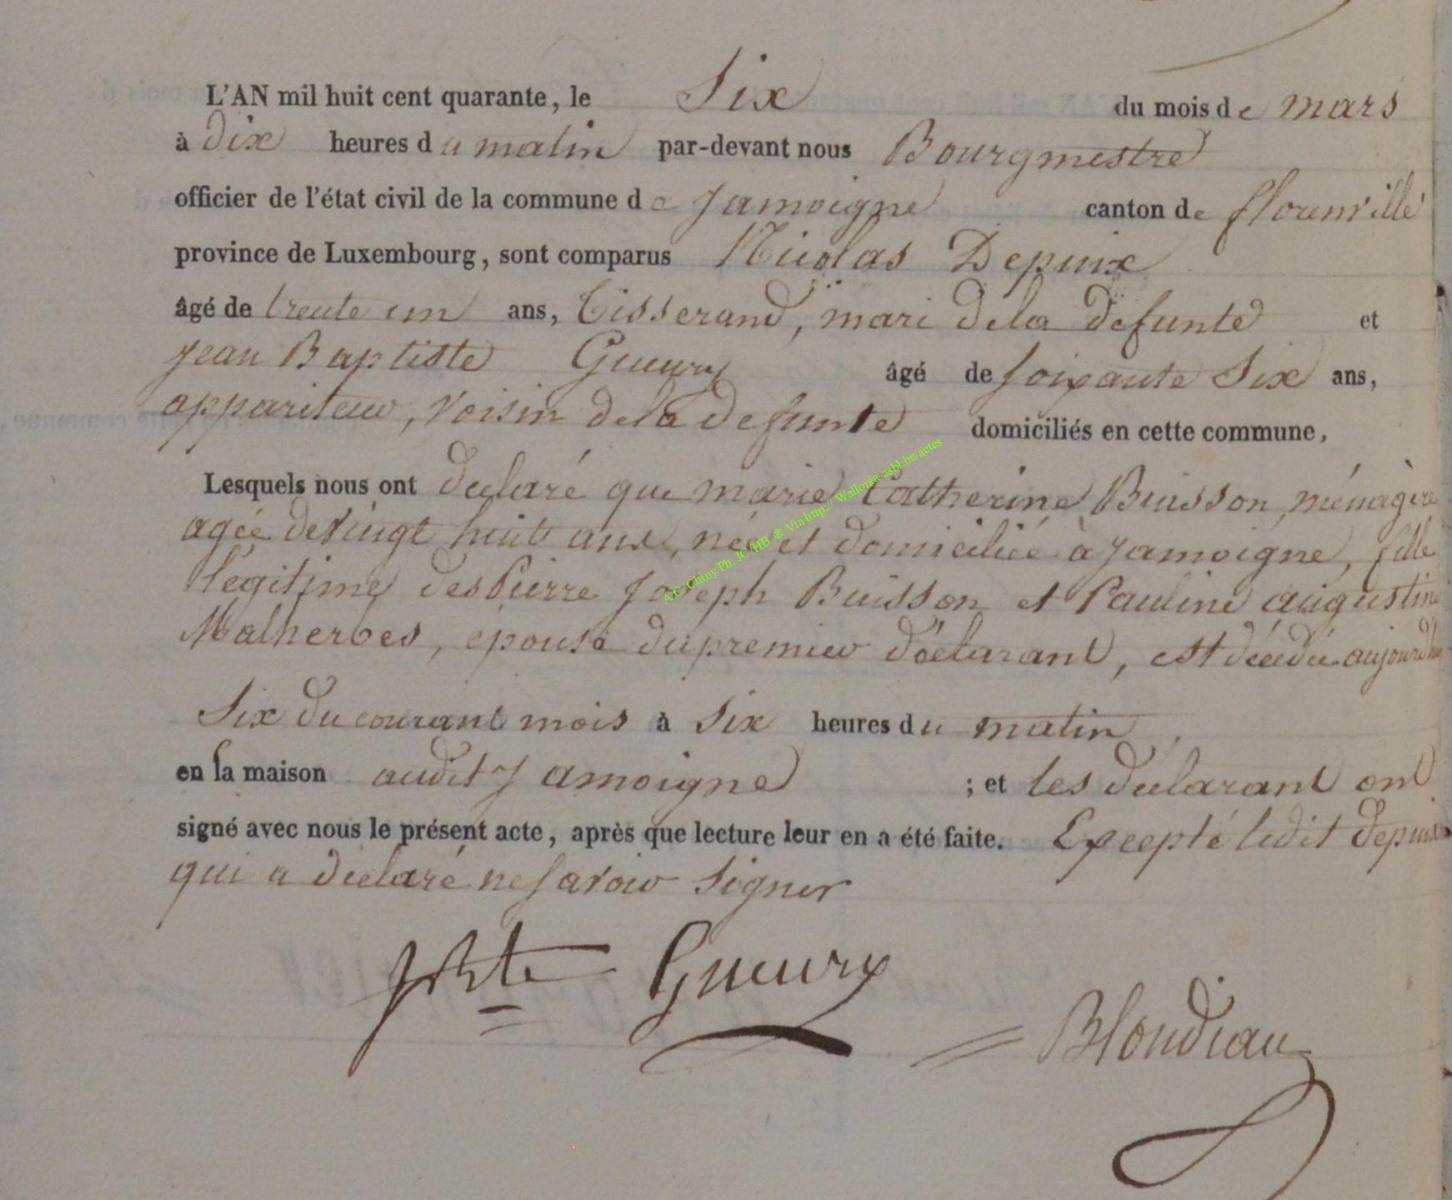 L'AN mil huit cent quarante, le Six du mois de mars
à dix heures du matin par-devant nous Bourgmestre
officier de l'état civil de la commune de Jamoigne canton de florenville
province de Luxembourg, sont comparus Nicolas Depuix
âgé de trente un ans, Tisserand, mari dela défunte et
Jean Baptiste Gueury âgé de soixante Six ans,
appariteur, voisin dela defunte domiciliés en cette commune,
Lesquels nous ont déclaré que marie Catherine Buisson, ménagère
agée de vingt huit ans, née et domiciliée à Jamoigne, fille
légitime des Pierre Joseph Buisson et Pauline augustine
Malherbes, epouse du premier déclarant, est décédée aujourd'hui
Six du courant mois à Six heures du matin,
en la maison audit Jamoigne ; et les déclarant ont
signé avec nous le présent acte, après que lecture leur en a été faite. Excepté ledit depuix
qui a déclaré ne savoir Signer
JBte Gueury
Blondiau